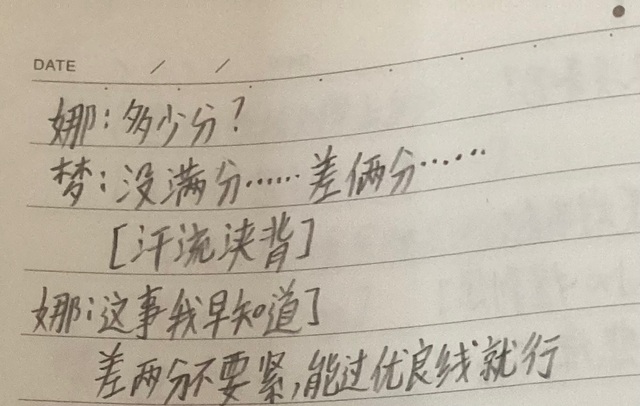 DATE / /
娜:多少分?
梦:没满分……差俩分……
[汗流浃背]
娜:这事我早知道]
差两分不要紧,能过优良线就行